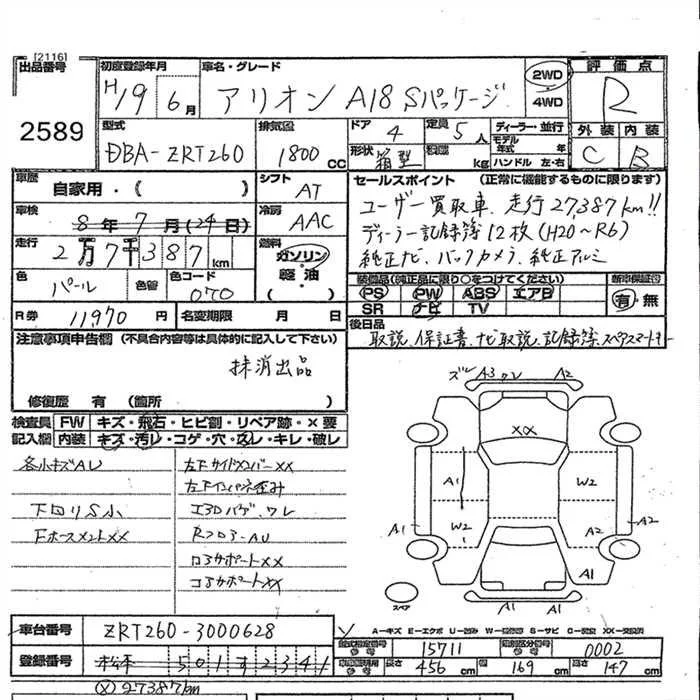 [2116]
出品番号
2589
初度登録年月
H19 6月
車名・グレード
アリオン A18 Sパッケージ
2WD
4WD
評価点
R
外装 内装
C B
型式
DBA-ZRT260
排気量
1800 CC
ドア
4
形状
箱型
定員
5人
積量
kg
ディーラー・並行
モデル年式 年
ハンドル 左・右
車歴
自家用・( )
車検
8年7月(24日)
走行
2万7千387km
色
パール
色替
色コード
070
シフト
AT
冷房
AAC
燃料
ガソリン
軽油
R券
11970円
名変期限 月 日
セールスポイント (正常に機能するものに限ります)
ユーザー買取車、走行27,387km!!
ディーラー記録簿12枚(H20~R6)
純正ナビ、バックカメラ、純正アルミ
装備品(純正品に限り○をつけてください)
PS PW ABS エアB
SR ナビ TV
新車保証書
有・無
後日品
取説、保証書、ナビ取説、記録簿、スペアスマートキー
注意事項申告欄 (不具合内容等は具体的に記入して下さい)
抹消出品
修復歴 有 (箇所 )
検査員記入欄
FW キズ・飛石・ヒビ割・リペア跡・×要
内装 キズ・汚レ・コゲ・穴・凹レ・キレ・破レ
各小キズAU
下回りS小
FホースメントXX
左FサイドメンバーXX
左Fインパネ歪み
ワレ
RフロアーAU
コアサポートXX
A3 ワレ A2
XX
A1 W2
A1 W2 A2 A2
A1
A1 A1
スペア
A-キズ E-エクボ U-凹み W-補修跡 S-サビ C-腐蝕 XX-交換済
車台番号
ZRT260-3000628
登録番号
松本 501す2341
型式指定番号
参考
15711
類別区分番号
参考
0002
参考
長さ 456cm 幅 169cm 高さ 147cm
27387km